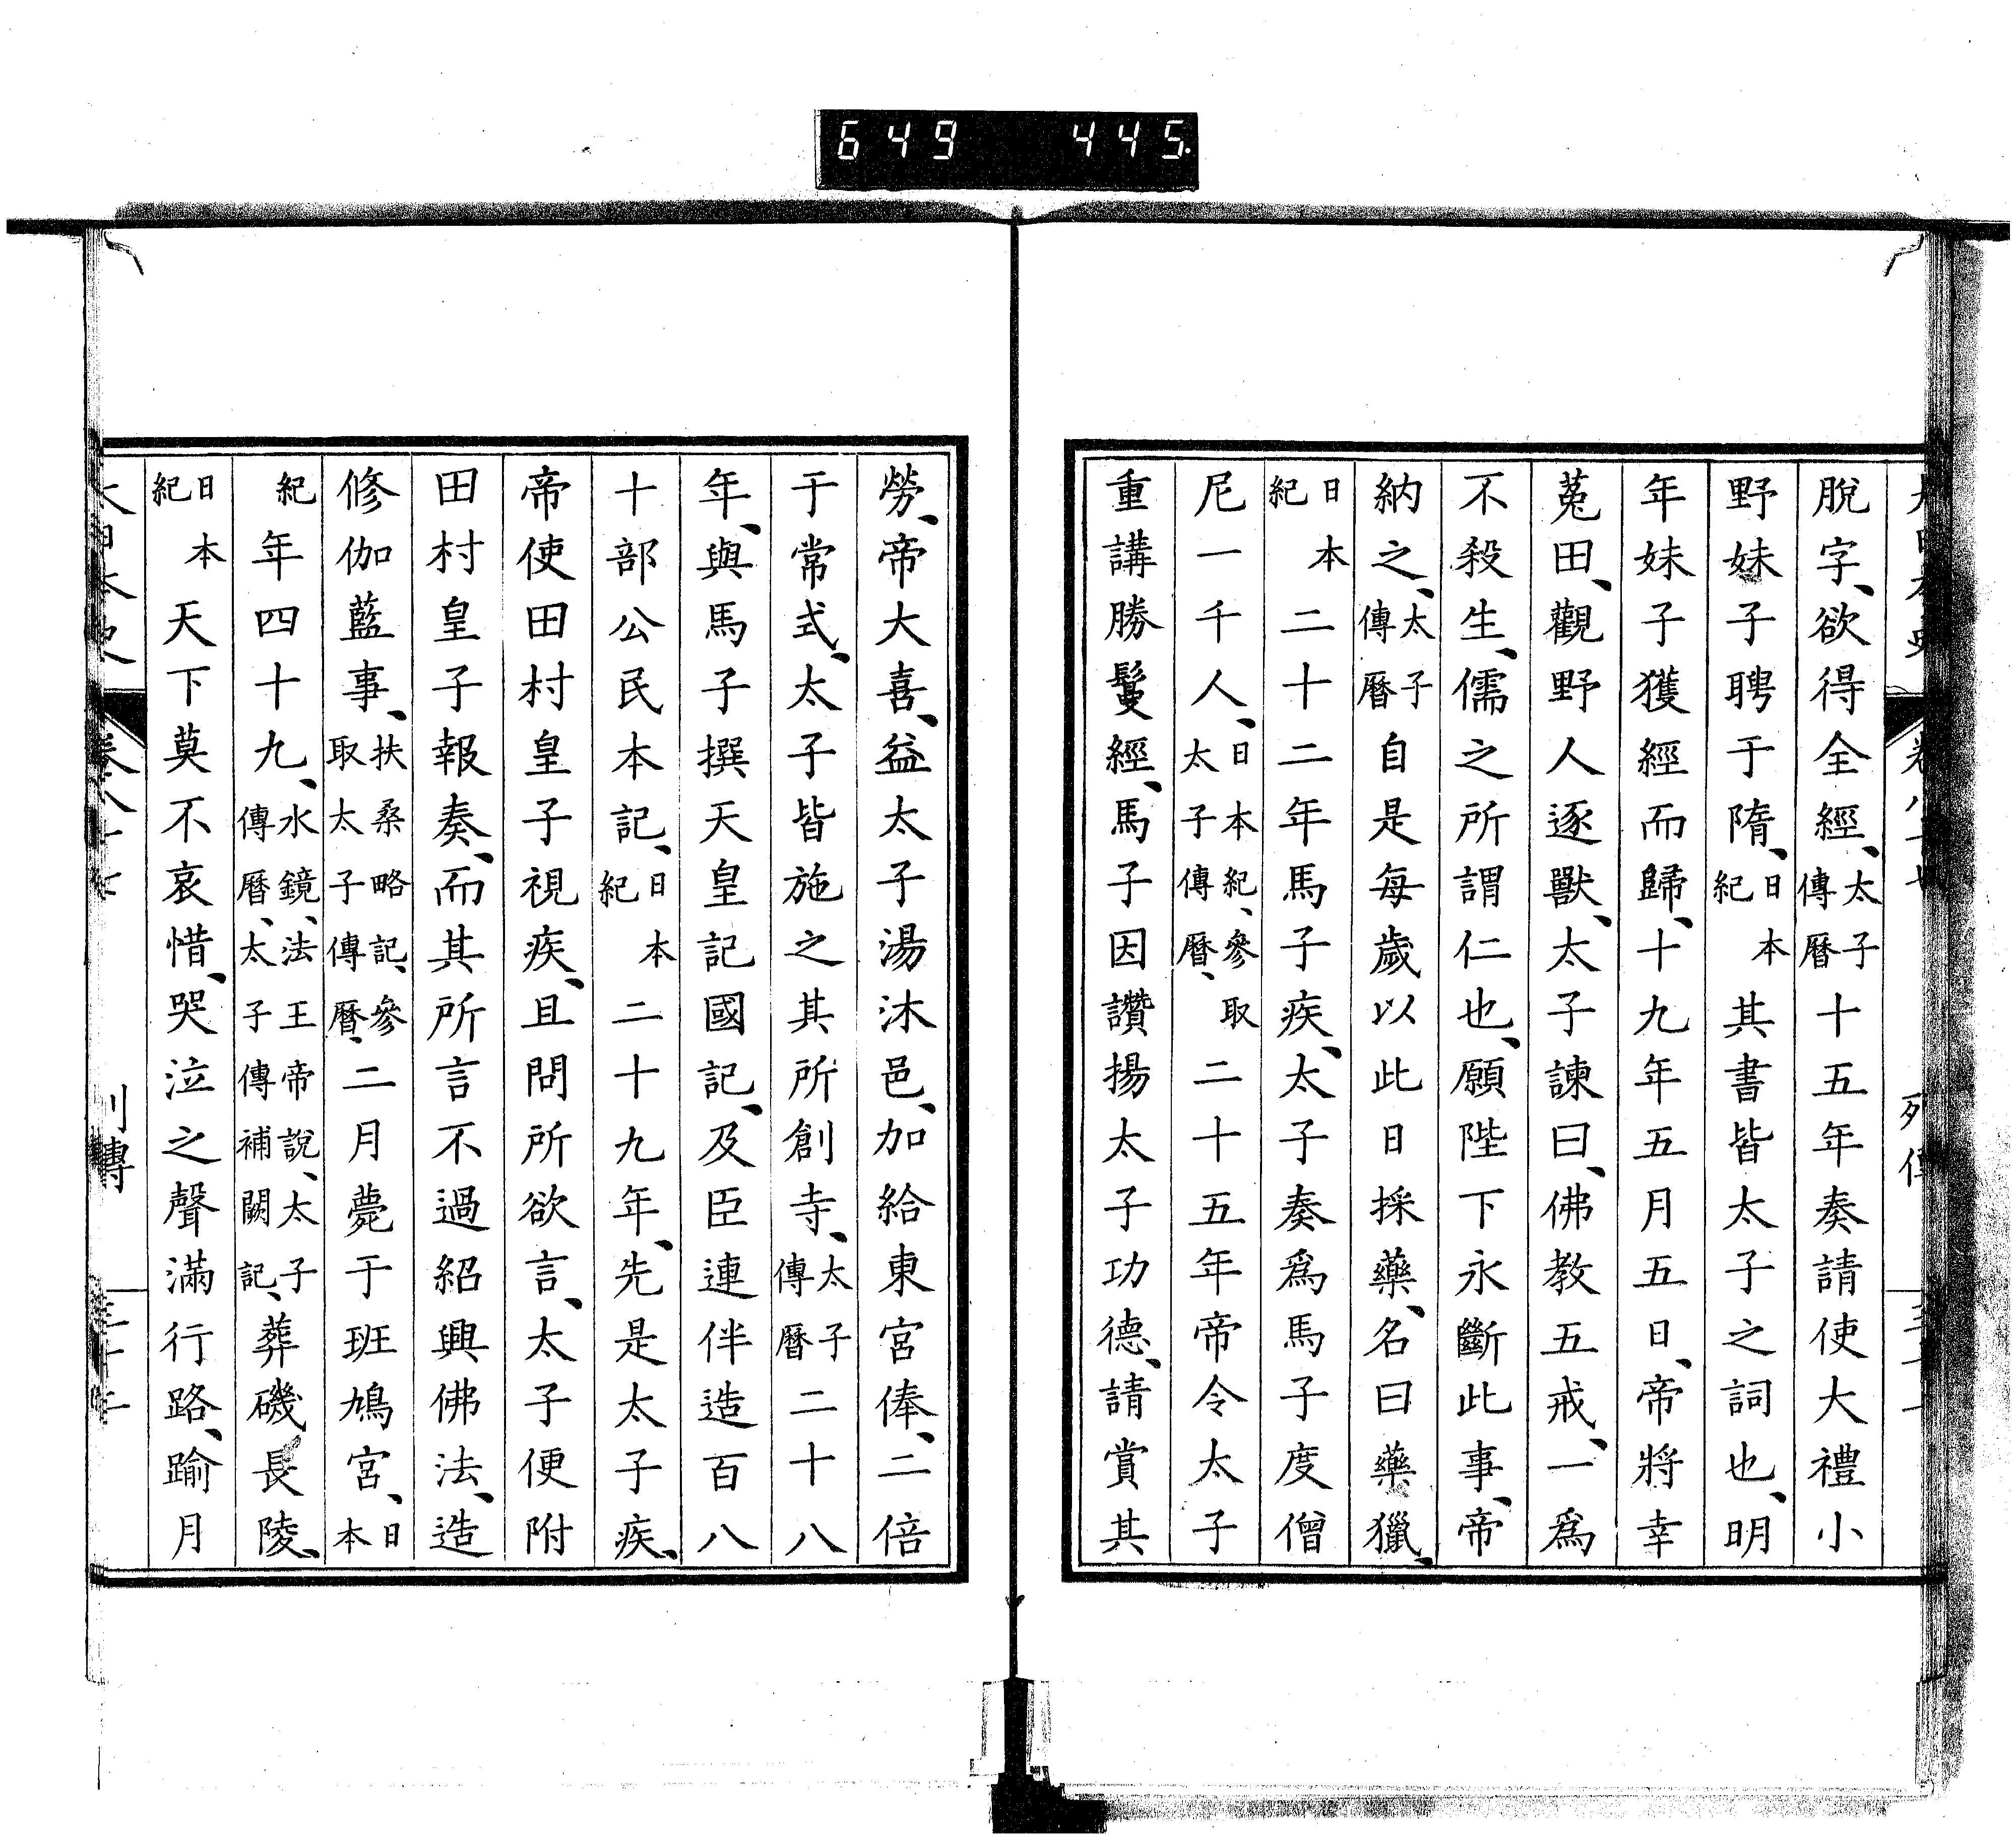 649 445.
脫字、欲得全經、太子傳曆十五年奏請使大禮小
野妹子聘于隋、日本紀其書皆太子之詞也、明
年妹子獲經而歸、十九年五月五日、帝將幸
菟田、觀野人逐獸、太子諫曰、佛教五戒、一爲
不殺生、儒之所謂仁也、願陛下永斷此事、帝
納之、太子傳曆自是每歲以此日採藥、名曰藥獵、
日本紀二十二年馬子疾、太子奏爲馬子度僧
尼一千人、日本紀、參取太子傳曆、二十五年帝令太子
重講勝鬘經、馬子因讚揚太子功德、請賞其
勞、帝大喜、益太子湯沐邑、加給東宮俸、二倍
于常式、太子皆施之其所創寺、太子傳曆二十八
年、與馬子撰天皇記國記、及臣連伴造百八
十部公民本記、日本紀二十九年、先是太子疾、
帝使田村皇子視疾、且問所欲言、太子便附
田村皇子報奏、而其所言不過紹興佛法、造
修伽藍事、扶桑略記、參取太子傳曆、二月薨于班鳩宮、日本
紀年四十九、水鏡、法王帝說、太子傳曆、太子傳補闕記、葬磯長陵、
日本紀天下莫不哀惜、哭泣之聲滿行路、踰月
列傳